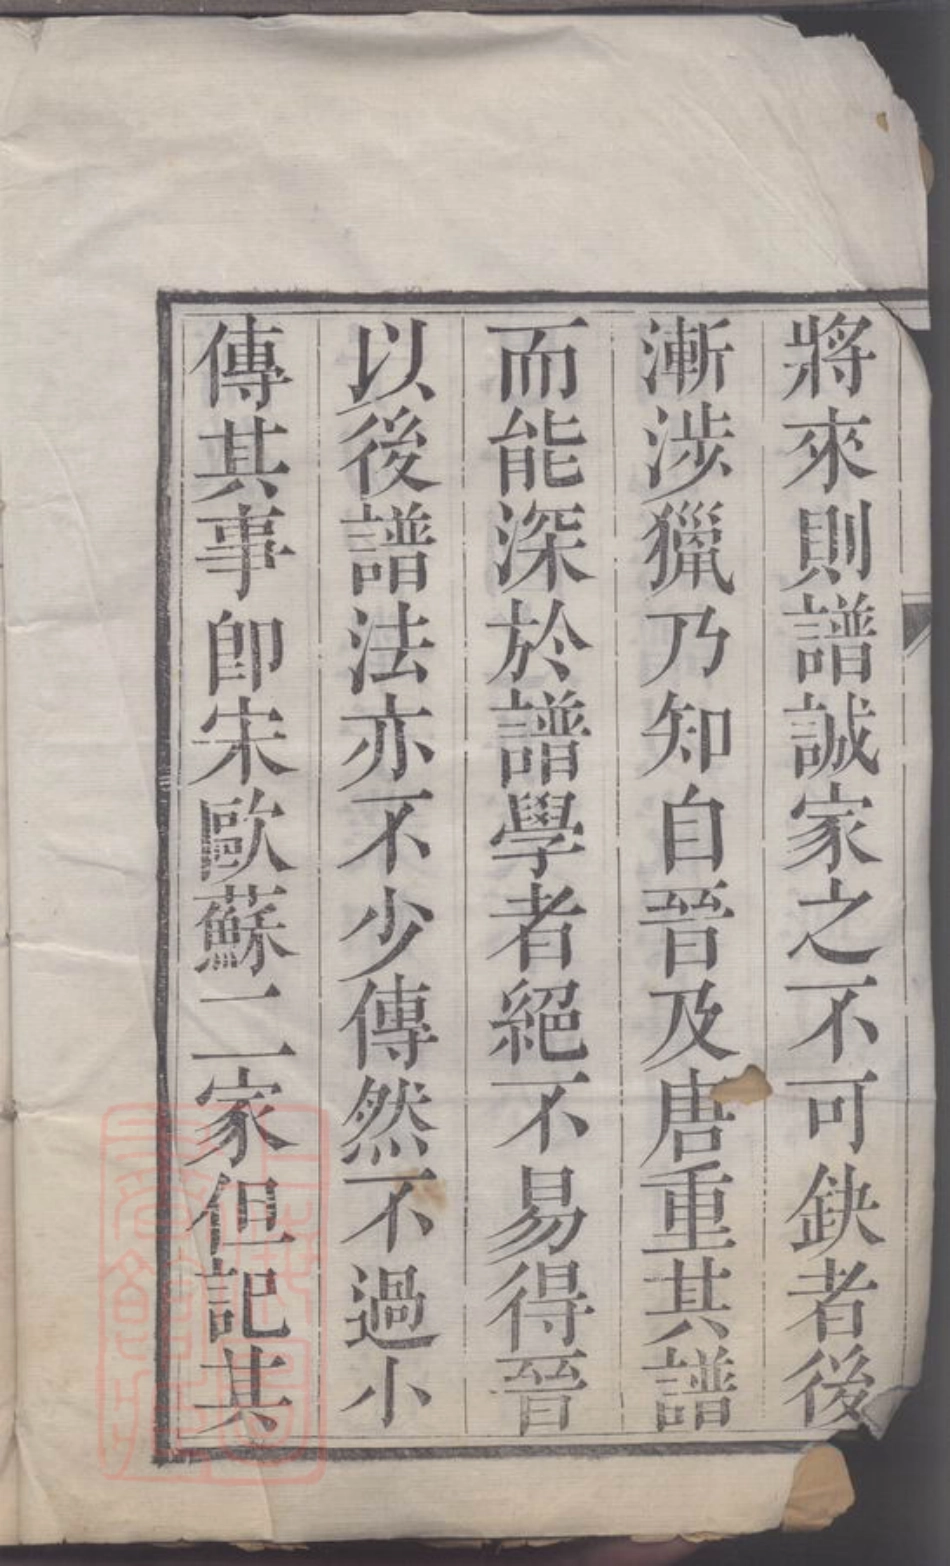 將來則譜誠家之不可缺者後
漸涉獵乃知自晉及唐重其譜
而能深於譜學者絕不易得晉
以後譜法亦不少傳然不過小
傳其事即宋歐蘇二家但記其